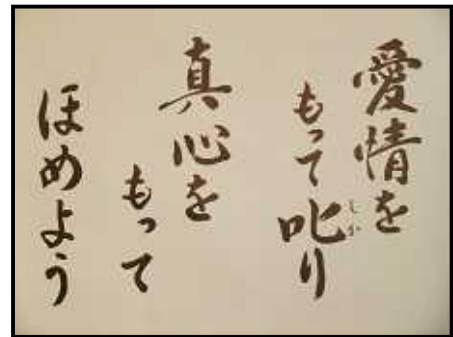 愛情を
もって叱り
真心を
もって
ほめよう